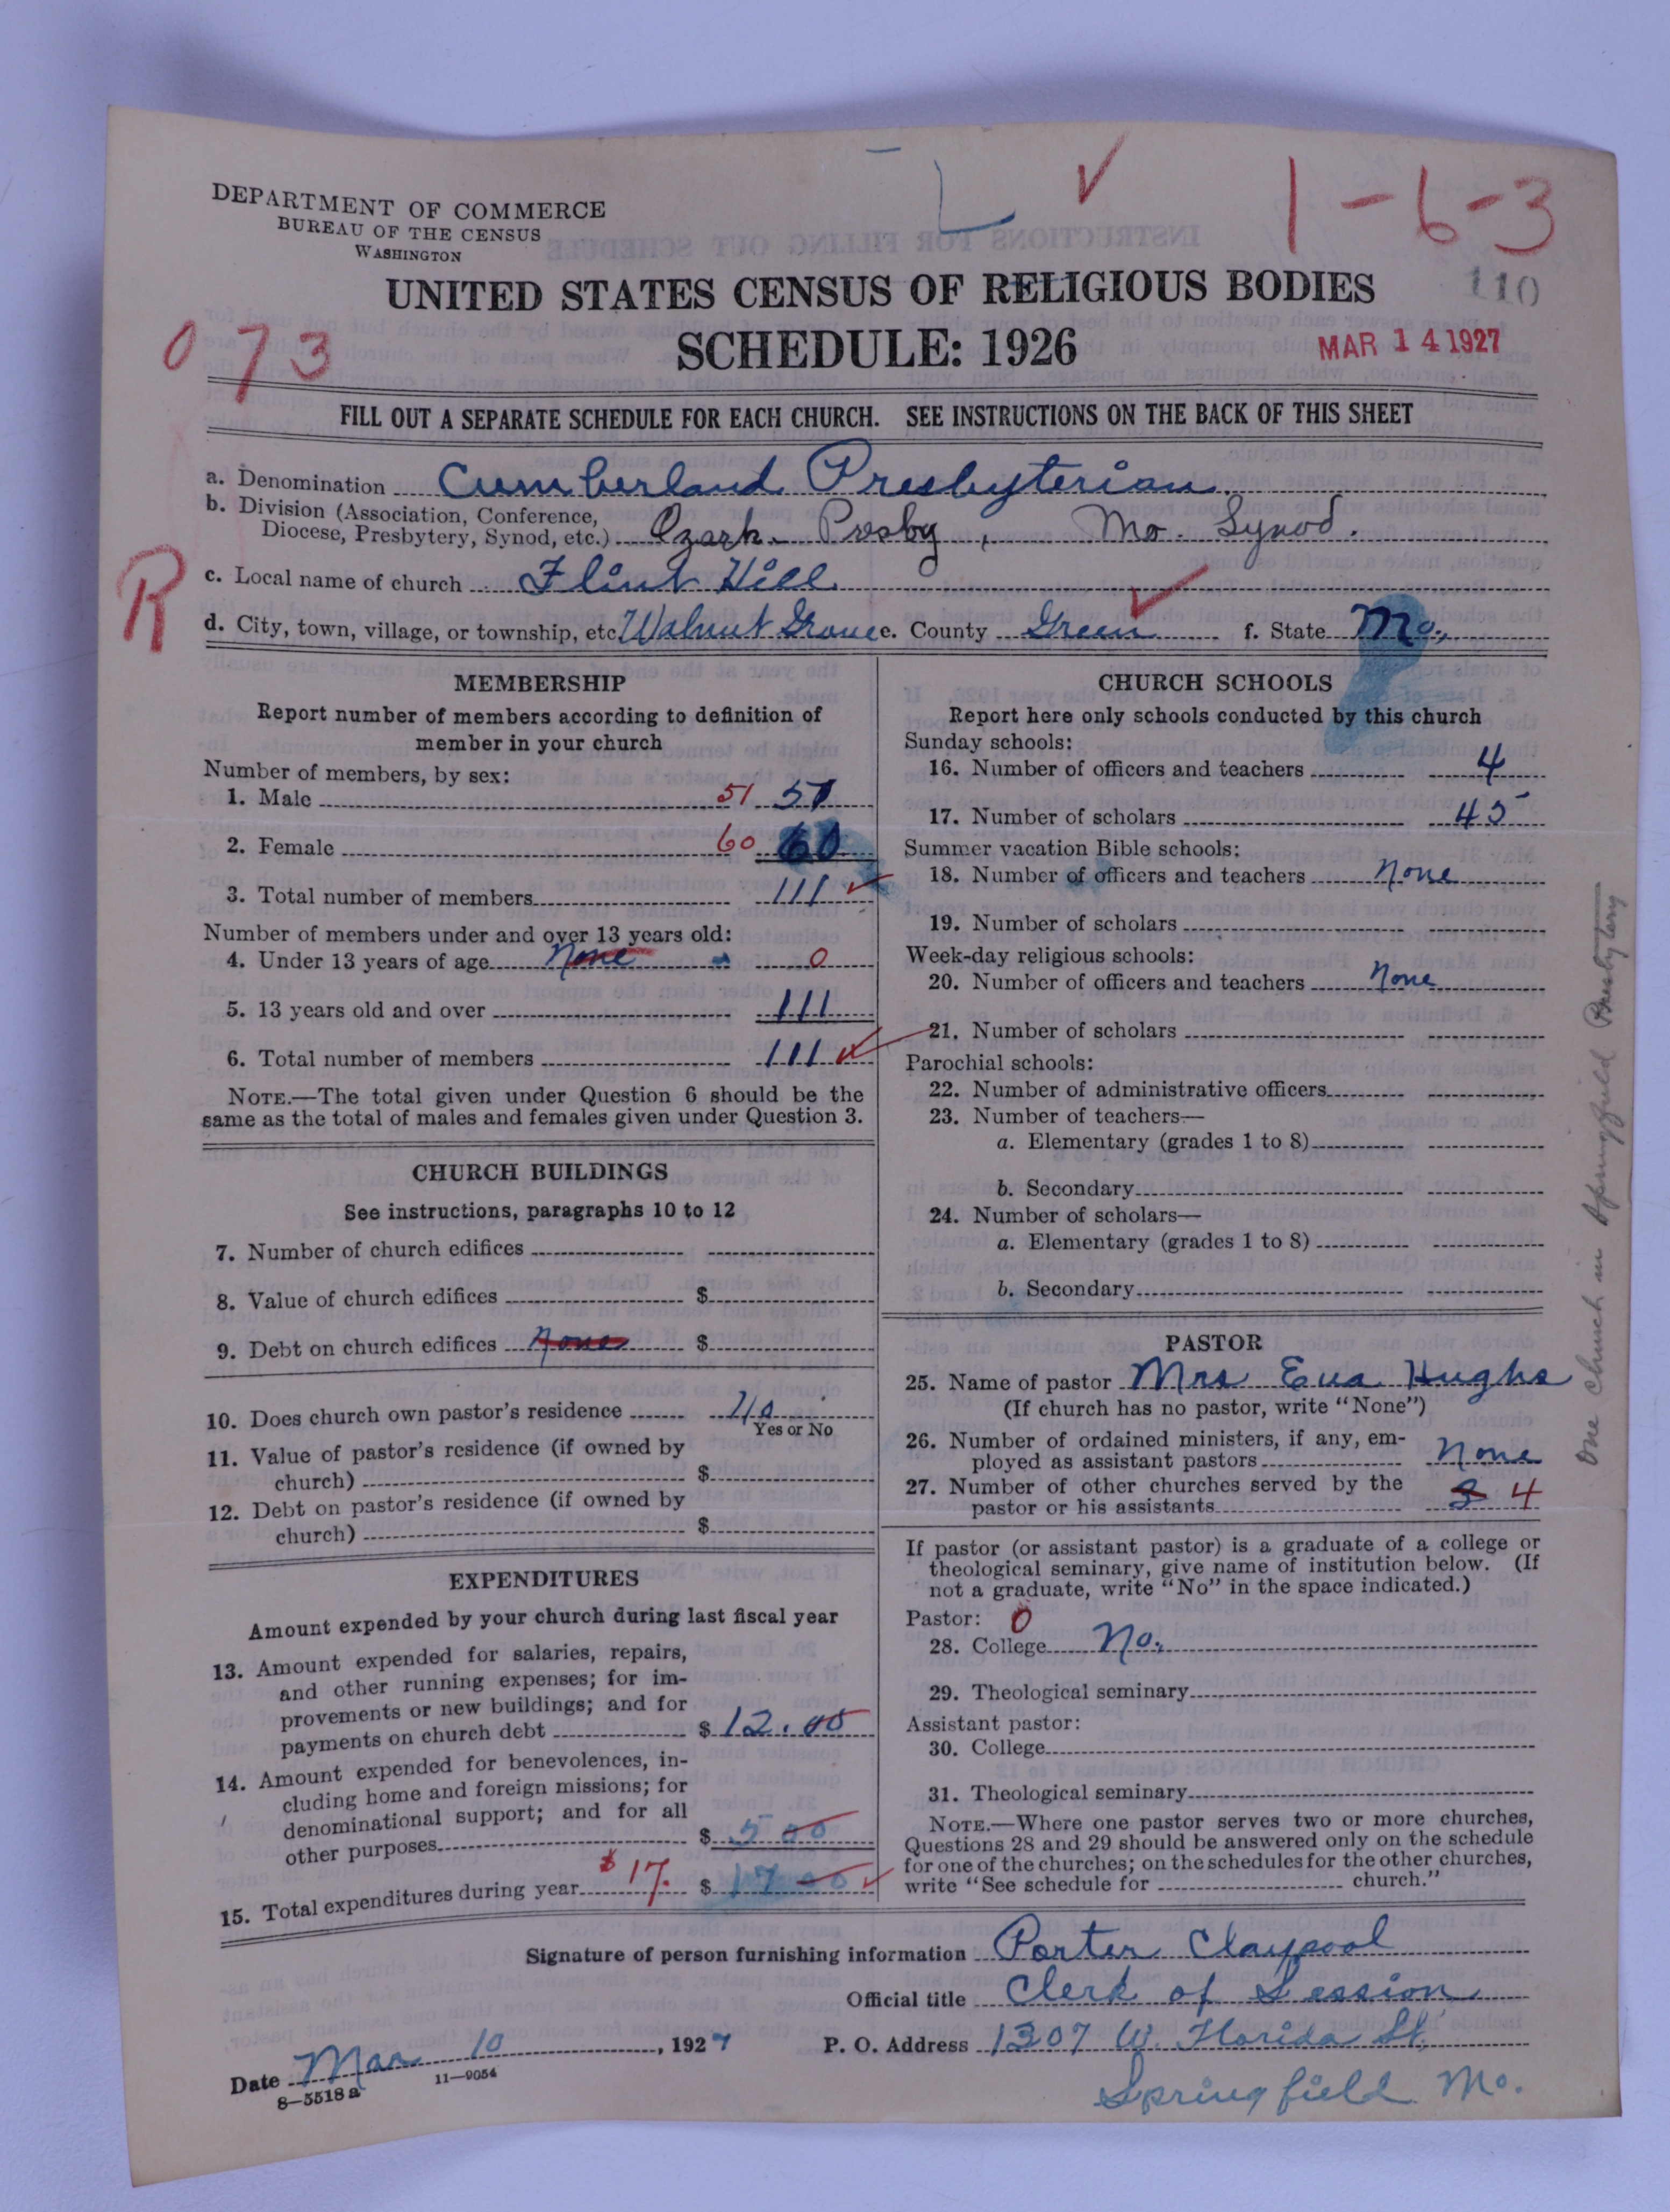 L ✓ 1-6-3
DEPARTMENT OF COMMERCE
BUREAU OF THE CENSUS
WASHINGTON
UNITED STATES CENSUS OF RELIGIOUS BODIES
110
SCHEDULE: 1926
MAR 14 1927
073
FILL OUT A SEPARATE SCHEDULE FOR EACH CHURCH. SEE INSTRUCTIONS ON THE BACK OF THIS SHEET
a. Denomination Cumberland Presbyterian
b. Division (Association, Conference,
Diocese, Presbytery, Synod, etc.) Ozark Presby, Mo. Synod.
R
c. Local name of church Flint Hill
d. City, town, village, or township, etc. Walnut Grove e. County Green f. State Mo.
MEMBERSHIP
Report number of members according to definition of
member in your church
Number of members, by sex:
1. Male 51 51
2. Female 60 60
3. Total number of members 111
Number of members under and over 13 years old:
4. Under 13 years of age None 0
5. 13 years old and over 111
6. Total number of members 111
NOTE.—The total given under Question 6 should be the
same as the total of males and females given under Question 3.
CHURCH BUILDINGS
See instructions, paragraphs 10 to 12
7. Number of church edifices
8. Value of church edifices $
9. Debt on church edifices None $
10. Does church own pastor's residence No
Yes or No
11. Value of pastor's residence (if owned by
church) $
12. Debt on pastor's residence (if owned by
church) $
EXPENDITURES
Amount expended by your church during last fiscal year
13. Amount expended for salaries, repairs,
and other running expenses; for im-
provements or new buildings; and for
payments on church debt $ 12.00
14. Amount expended for benevolences, in-
cluding home and foreign missions; for
denominational support; and for all
other purposes $ 5 00
15. Total expenditures during year $17. $ 17 00
CHURCH SCHOOLS
Report here only schools conducted by this church
Sunday schools:
16. Number of officers and teachers 4
17. Number of scholars 45
Summer vacation Bible schools:
18. Number of officers and teachers None
19. Number of scholars
Week-day religious schools:
20. Number of officers and teachers None
21. Number of scholars
Parochial schools:
22. Number of administrative officers
23. Number of teachers—
a. Elementary (grades 1 to 8)
b. Secondary
24. Number of scholars—
a. Elementary (grades 1 to 8)
b. Secondary
PASTOR
25. Name of pastor Mrs Eva Hughs
(If church has no pastor, write "None")
26. Number of ordained ministers, if any, em-
ployed as assistant pastors None
27. Number of other churches served by the
pastor or his assistants 3 4
If pastor (or assistant pastor) is a graduate of a college or
theological seminary, give name of institution below. (If
not a graduate, write "No" in the space indicated.)
Pastor: 0
28. College No.
29. Theological seminary
Assistant pastor:
30. College
31. Theological seminary
NOTE.—Where one pastor serves two or more churches,
Questions 28 and 29 should be answered only on the schedule
for one of the churches; on the schedules for the other churches,
write "See schedule for church."
One church in Springfield Presbytery
Signature of person furnishing information Porter Claypool
Official title Clerk of Session
Date Mar 10, 1927 P. O. Address 1307 W. Florida St,
8—5518 a 11—9054
Springfield Mo.